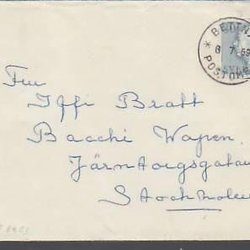 * BETTN
8 7. 59
POSTOMB
Fru
Iffi Bratt
Bacchi Wapen.
Järntorgsgatan
Stockholm